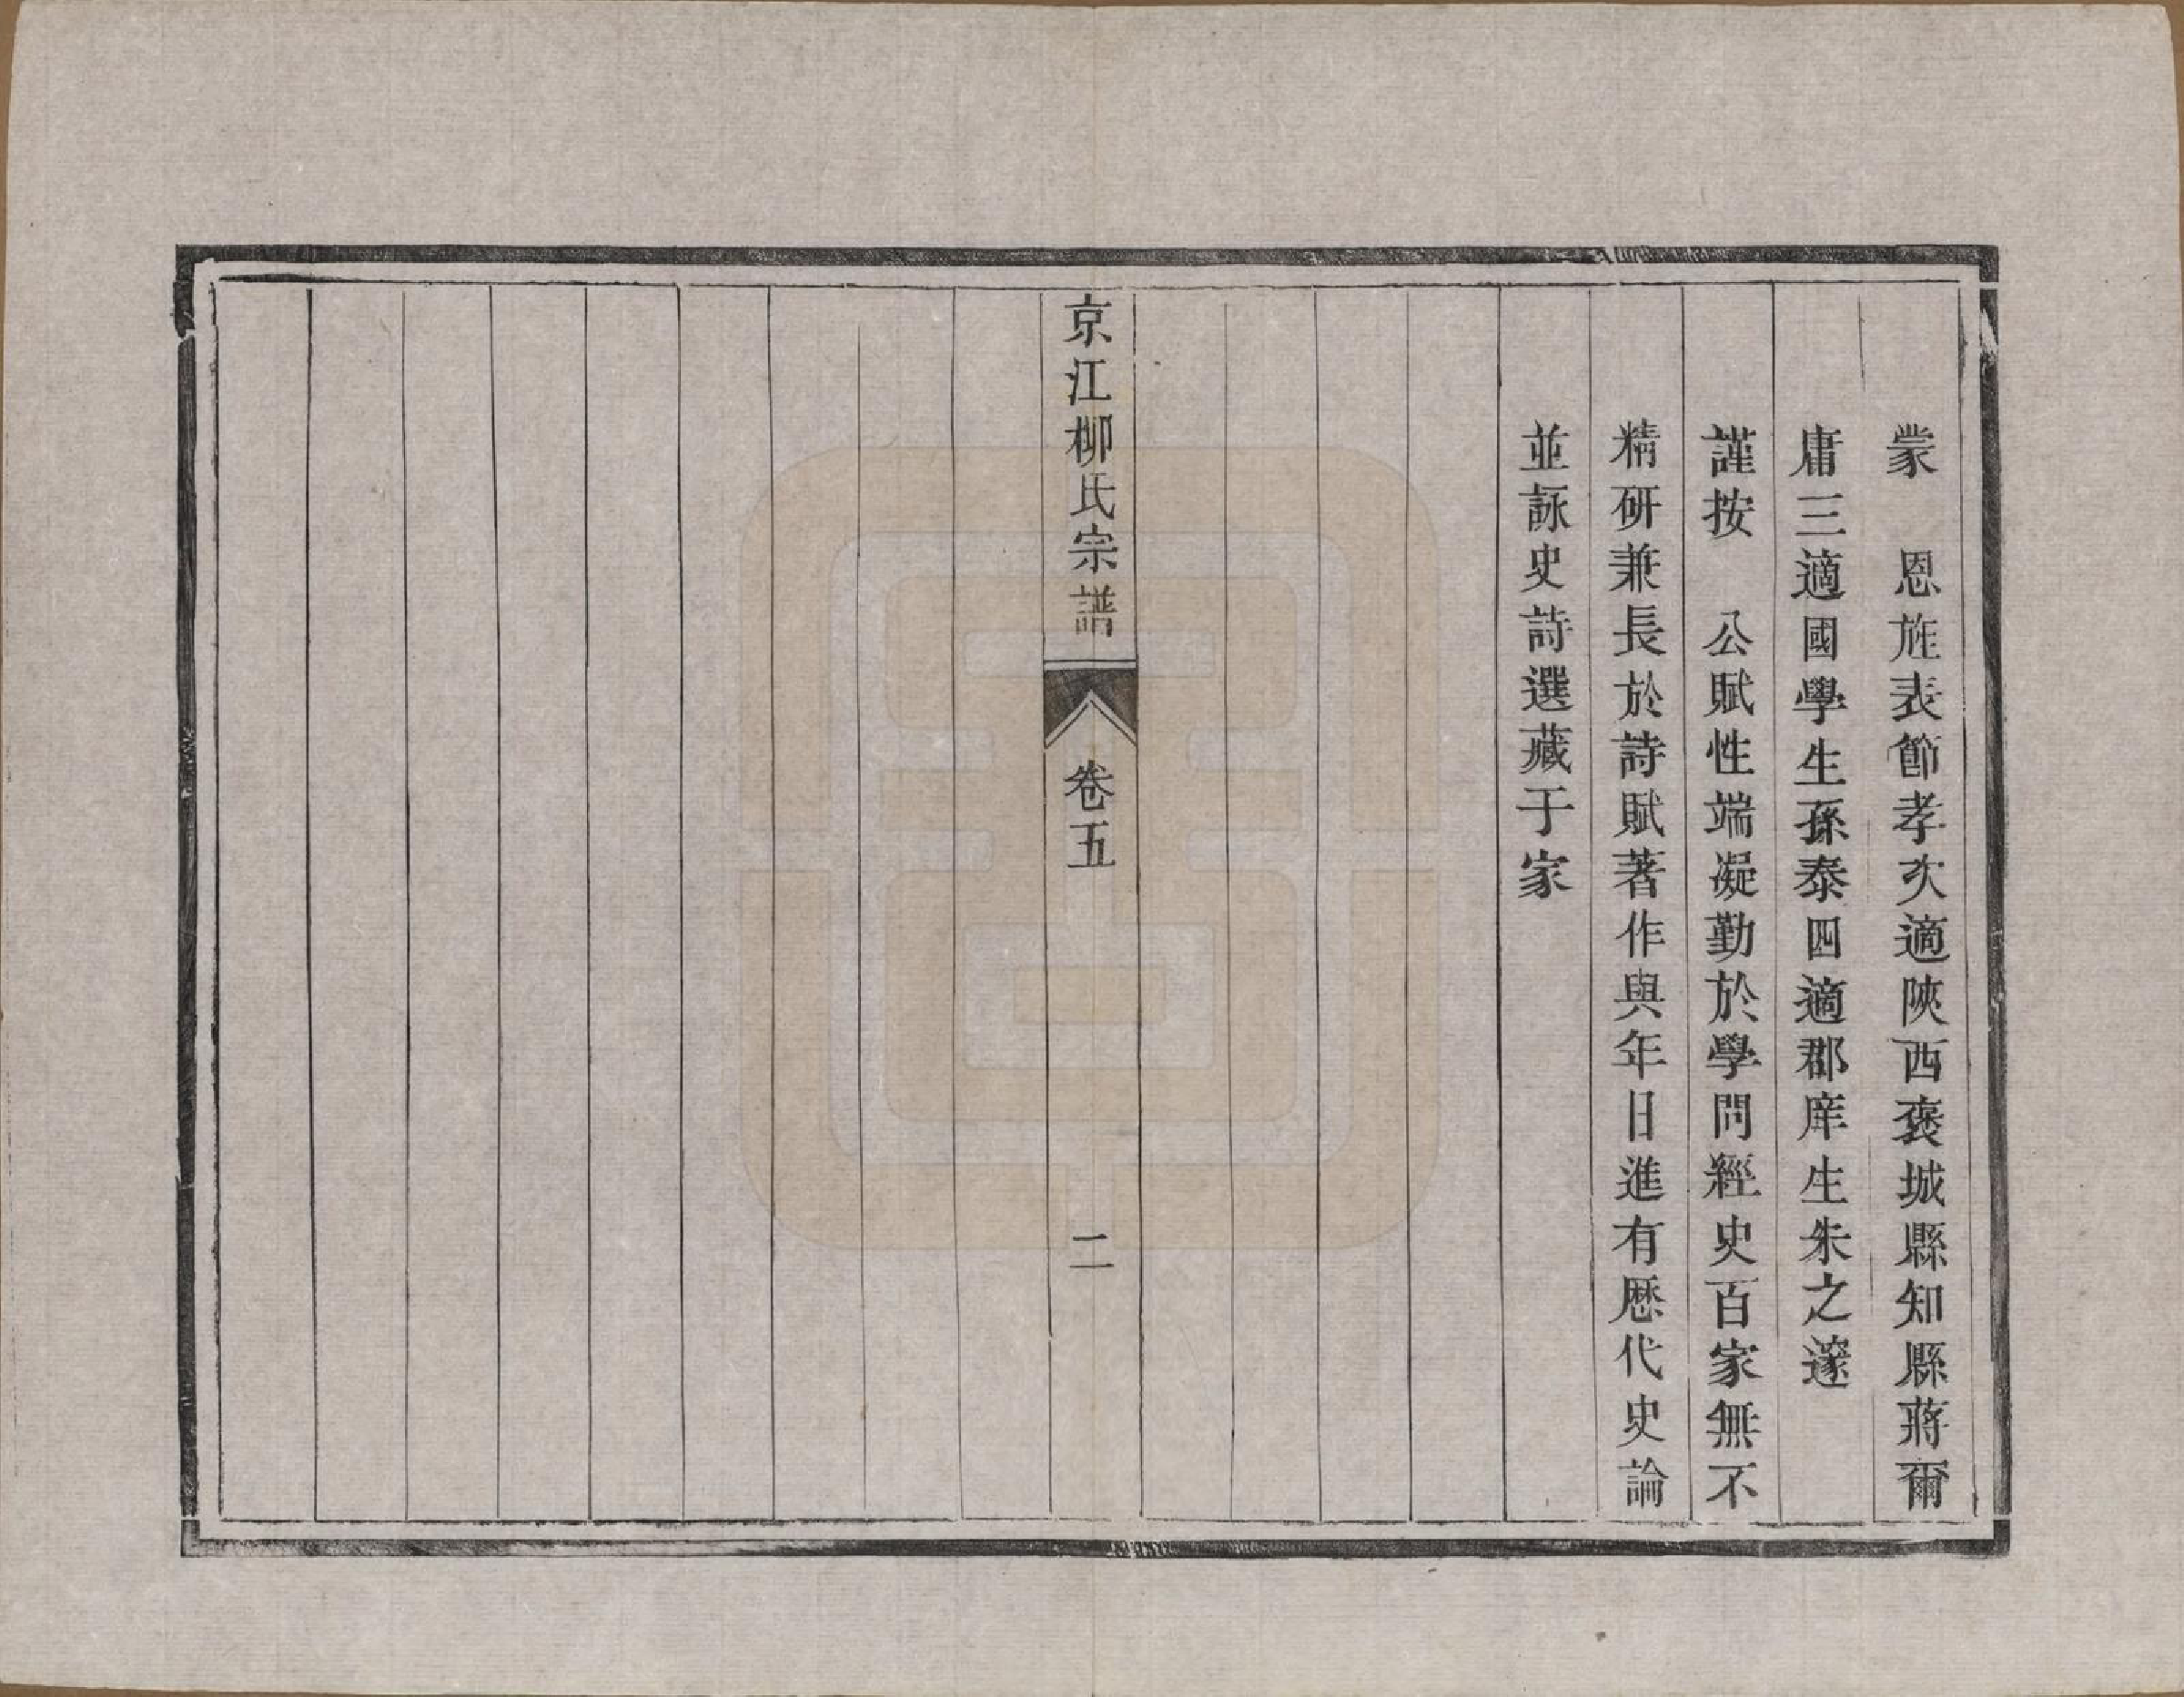 蒙　恩旌表節孝次適陝西褒城縣知縣蔣爾
庸三適國學生孫泰四適郡庠生朱之邃
謹按　公賦性端凝勤於學問經史百家無不
精研兼長於詩賦著作與年日進有歷代史論
並詠史詩選藏于家
京江柳氏宗譜　卷五　二